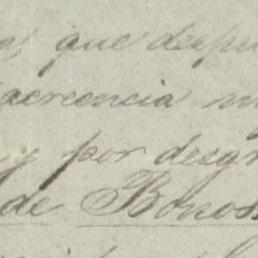 que despu
acreencia
y por desgr
de Bonos